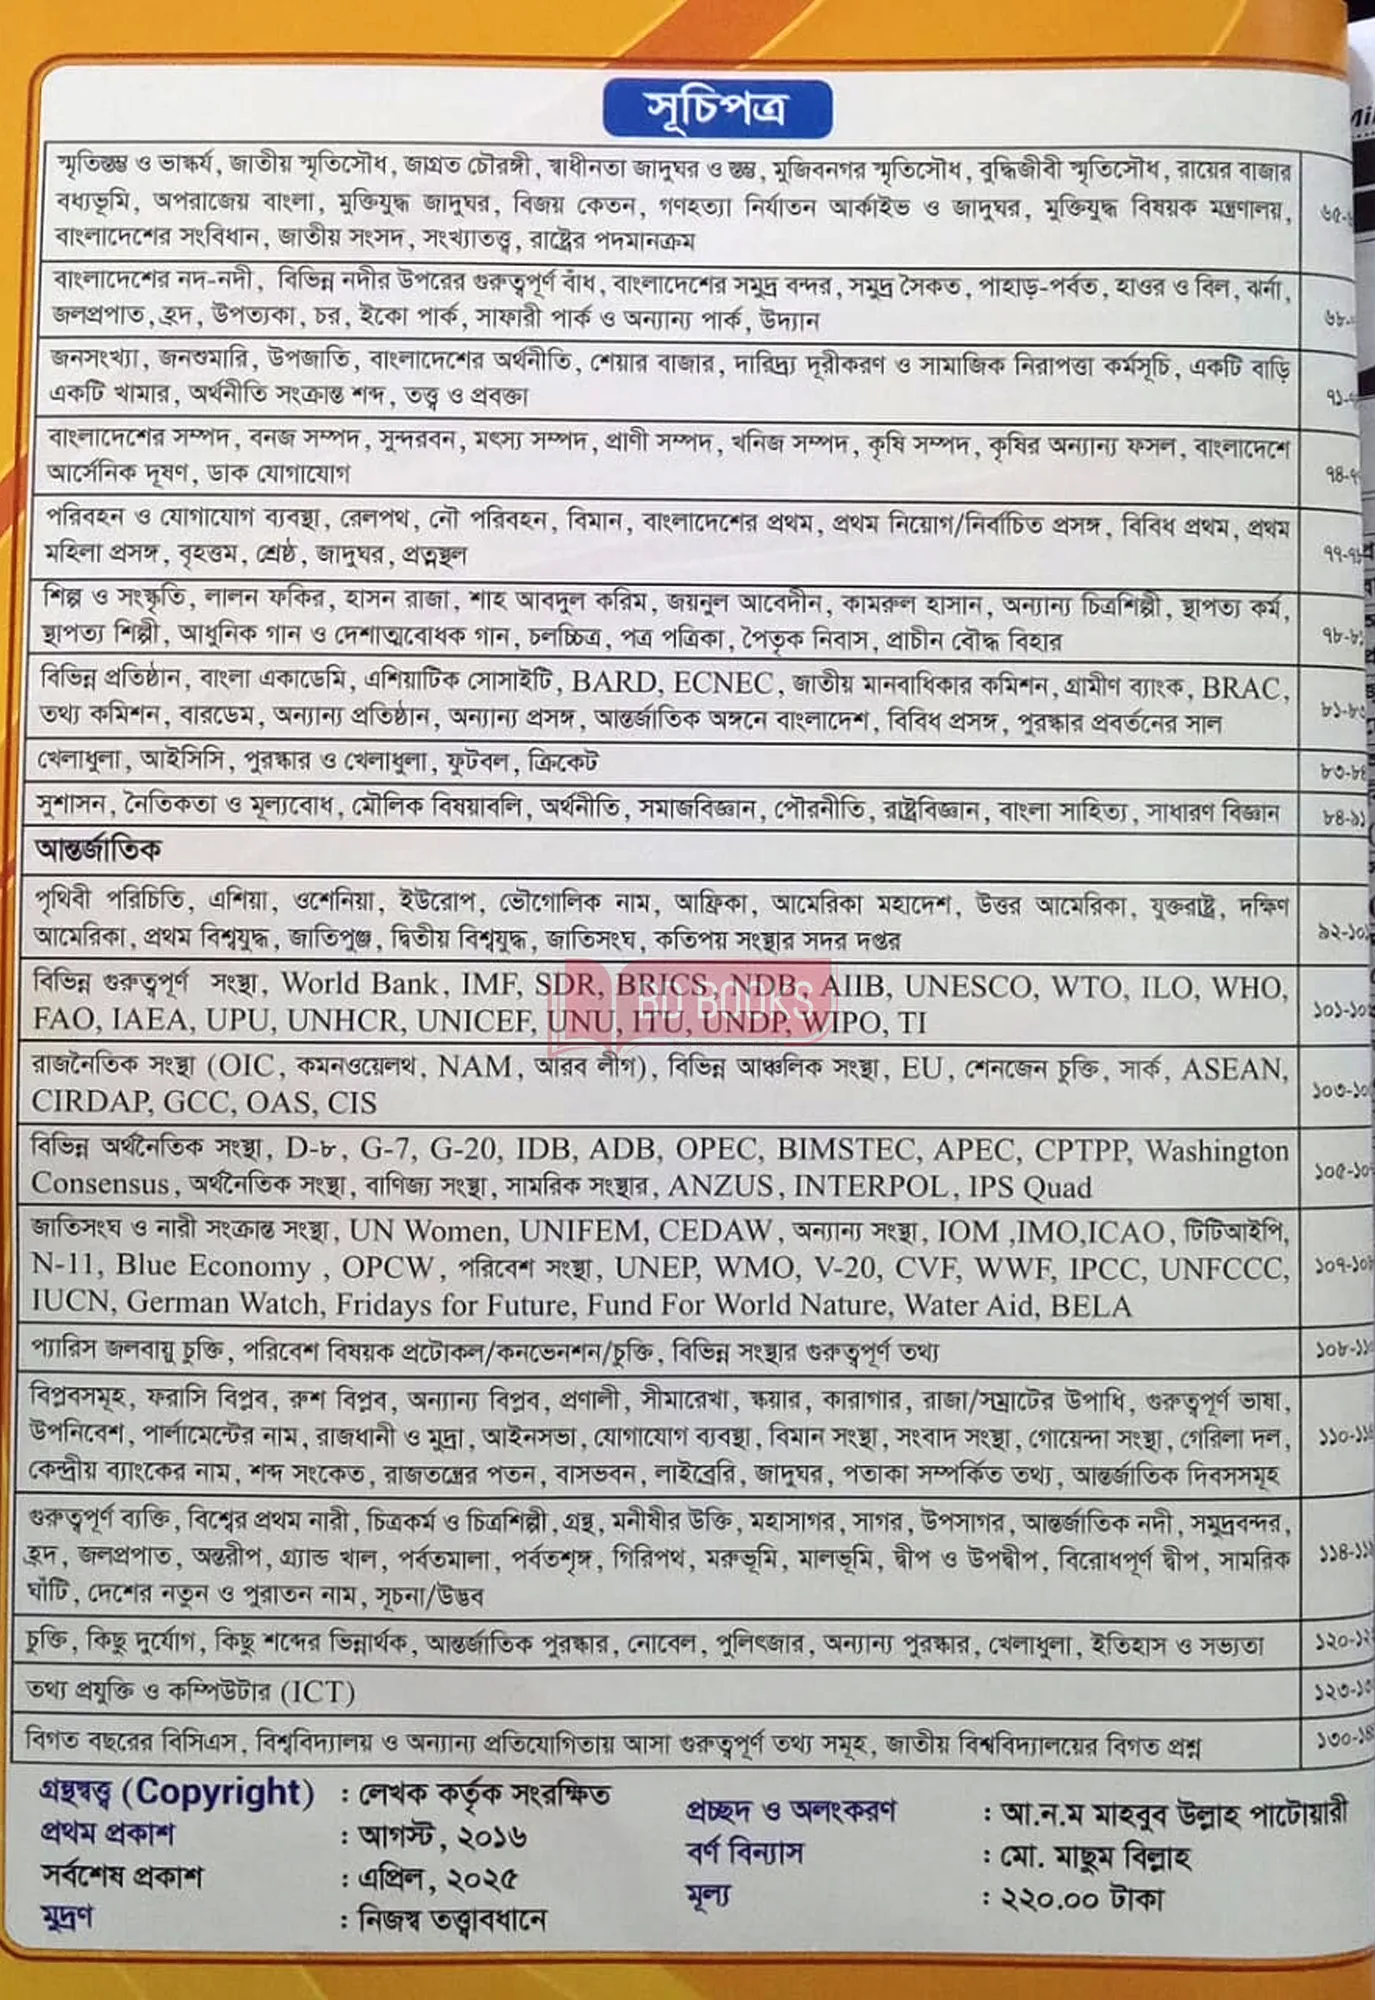 সূচিপত্র
স্মৃতিস্তম্ভ ও ভাস্কর্য, জাতীয় স্মৃতিসৌধ, জাগ্রত চৌরঙ্গী, স্বাধীনতা জাদুঘর ও স্তম্ভ, মুজিবনগর স্মৃতিসৌধ, বুদ্ধিজীবী স্মৃতিসৌধ, রায়ের বাজার
বধ্যভূমি, অপরাজেয় বাংলা, মুক্তিযুদ্ধ জাদুঘর, বিজয় কেতন, গণহত্যা নির্যাতন আর্কাইভ ও জাদুঘর, মুক্তিযুদ্ধ বিষয়ক মন্ত্রণালয়,
বাংলাদেশের সংবিধান, জাতীয় সংসদ, সংখ্যাতত্ত্ব, রাষ্ট্রের পদমানক্রম
বাংলাদেশের নদ-নদী, বিভিন্ন নদীর উপরের গুরুত্বপূর্ণ বাঁধ, বাংলাদেশের সমুদ্র বন্দর, সমুদ্র সৈকত, পাহাড়-পর্বত, হাওর ও বিল, ঝর্না,
জলপ্রপাত, হ্রদ, উপত্যকা, চর, ইকো পার্ক, সাফারী পার্ক ও অন্যান্য পার্ক, উদ্যান
জনসংখ্যা, জনশুমারি, উপজাতি, বাংলাদেশের অর্থনীতি, শেয়ার বাজার, দারিদ্র্য দূরীকরণ ও সামাজিক নিরাপত্তা কর্মসূচি, একটি বাড়ি
একটি খামার, অর্থনীতি সংক্রান্ত শব্দ, তত্ত্ব ও প্রবক্তা
বাংলাদেশের সম্পদ, বনজ সম্পদ, সুন্দরবন, মৎস্য সম্পদ, প্রাণী সম্পদ, খনিজ সম্পদ, কৃষি সম্পদ, কৃষির অন্যান্য ফসল, বাংলাদেশে
আর্সেনিক দূষণ, ডাক যোগাযোগ
পরিবহন ও যোগাযোগ ব্যবস্থা, রেলপথ, নৌ পরিবহন, বিমান, বাংলাদেশের প্রথম, প্রথম নিয়োগ/নির্বাচিত প্রসঙ্গ, বিবিধ প্রথম, প্রথম
মহিলা প্রসঙ্গ, বৃহত্তম, শ্রেষ্ঠ, জাদুঘর, প্রত্নস্থল
শিল্প ও সংস্কৃতি, লালন ফকির, হাসন রাজা, শাহ আবদুল করিম, জয়নুল আবেদীন, কামরুল হাসান, অন্যান্য চিত্রশিল্পী, স্থাপত্য কর্ম,
স্থাপত্য শিল্পী, আধুনিক গান ও দেশাত্মবোধক গান, চলচ্চিত্র, পত্র পত্রিকা, পৈতৃক নিবাস, প্রাচীন বৌদ্ধ বিহার
বিভিন্ন প্রতিষ্ঠান, বাংলা একাডেমি, এশিয়াটিক সোসাইটি, BARD, ECNEC, জাতীয় মানবাধিকার কমিশন, গ্রামীণ ব্যাংক, BRAC,
তথ্য কমিশন, বারডেম, অন্যান্য প্রতিষ্ঠান, অন্যান্য প্রসঙ্গ, আন্তর্জাতিক অঙ্গনে বাংলাদেশ, বিবিধ প্রসঙ্গ, পুরস্কার প্রবর্তনের সাল
খেলাধুলা, আইসিসি, পুরস্কার ও খেলাধুলা, ফুটবল, ক্রিকেট
৮৩-৮৪
সুশাসন, নৈতিকতা ও মূল্যবোধ, মৌলিক বিষয়াবলি, অর্থনীতি, সমাজবিজ্ঞান, পৌরনীতি, রাষ্ট্রবিজ্ঞান, বাংলা সাহিত্য, সাধারণ বিজ্ঞান
৮৪-৯১
আন্তর্জাতিক
পৃথিবী পরিচিতি, এশিয়া, ওশেনিয়া, ইউরোপ, ভৌগোলিক নাম, আফ্রিকা, আমেরিকা মহাদেশ, উত্তর আমেরিকা, যুক্তরাষ্ট্র, দক্ষিণ
আমেরিকা, প্রথম বিশ্বযুদ্ধ, জাতিপুঞ্জ, দ্বিতীয় বিশ্বযুদ্ধ, জাতিসংঘ, কতিপয় সংস্থার সদর দপ্তর
বিভিন্ন গুরুত্বপূর্ণ সংস্থা, World Bank, IMF, SDR, BRICS, NDB, AIIB, UNESCO, WTO, ILO, WHO,
FAO, IAEA, UPU, UNHCR, UNICEF, UNU, ITU, UNDP, WIPO, TI
BD BOOKS
রাজনৈতিক সংস্থা (OIC, কমনওয়েলথ, NAM, আরব লীগ), বিভিন্ন আঞ্চলিক সংস্থা, EU, শেনজেন চুক্তি, সার্ক, ASEAN,
CIRDAP, GCC, OAS, CIS
বিভিন্ন অর্থনৈতিক সংস্থা, D-৮, G-7, G-20, IDB, ADB, OPEC, BIMSTEC, APEC, CPTPP, Washington
Consensus, অর্থনৈতিক সংস্থা, বাণিজ্য সংস্থা, সামরিক সংস্থার, ANZUS, INTERPOL, IPS Quad
জাতিসংঘ ও নারী সংক্রান্ত সংস্থা, UN Women, UNIFEM, CEDAW, অন্যান্য সংস্থা, IOM ,IMO,ICAO, টিটিআইপি,
N-11, Blue Economy , OPCW, পরিবেশ সংস্থা, UNEP, WMO, V-20, CVF, WWF, IPCC, UNFCCC,
IUCN, German Watch, Fridays for Future, Fund For World Nature, Water Aid, BELA
প্যারিস জলবায়ু চুক্তি, পরিবেশ বিষয়ক প্রটোকল/কনভেনশন/চুক্তি, বিভিন্ন সংস্থার গুরুত্বপূর্ণ তথ্য
বিপ্লবসমূহ, ফরাসি বিপ্লব, রুশ বিপ্লব, অন্যান্য বিপ্লব, প্রণালী, সীমারেখা, স্কয়ার, কারাগার, রাজা/সম্রাটের উপাধি, গুরুত্বপূর্ণ ভাষা,
উপনিবেশ, পার্লামেন্টের নাম, রাজধানী ও মুদ্রা, আইনসভা, যোগাযোগ ব্যবস্থা, বিমান সংস্থা, সংবাদ সংস্থা, গোয়েন্দা সংস্থা, গেরিলা দল,
কেন্দ্রীয় ব্যাংকের নাম, শব্দ সংকেত, রাজতন্ত্রের পতন, বাসভবন, লাইব্রেরি, জাদুঘর, পতাকা সম্পর্কিত তথ্য, আন্তর্জাতিক দিবসসমূহ
গুরুত্বপূর্ণ ব্যক্তি, বিশ্বের প্রথম নারী, চিত্রকর্ম ও চিত্রশিল্পী, গ্রন্থ, মনীষীর উক্তি, মহাসাগর, সাগর, উপসাগর, আন্তর্জাতিক নদী, সমুদ্রবন্দর,
হ্রদ, জলপ্রপাত, অন্তরীপ, গ্র্যান্ড খাল, পর্বতমালা, পর্বতশৃঙ্গ, গিরিপথ, মরুভূমি, মালভূমি, দ্বীপ ও উপদ্বীপ, বিরোধপূর্ণ দ্বীপ, সামরিক
ঘাঁটি, দেশের নতুন ও পুরাতন নাম, সূচনা/উদ্ভব
চুক্তি, কিছু দুর্যোগ, কিছু শব্দের ভিন্নার্থক, আন্তর্জাতিক পুরস্কার, নোবেল, পুলিৎজার, অন্যান্য পুরস্কার, খেলাধুলা, ইতিহাস ও সভ্যতা
তথ্য প্রযুক্তি ও কম্পিউটার (ICT)
বিগত বছরের বিসিএস, বিশ্ববিদ্যালয় ও অন্যান্য প্রতিযোগিতায় আসা গুরুত্বপূর্ণ তথ্য সমূহ, জাতীয় বিশ্ববিদ্যালয়ের বিগত প্রশ্ন
গ্রন্থস্বত্ত্ব (Copyright) : লেখক কর্তৃক সংরক্ষিত
প্রথম প্রকাশ : আগস্ট, ২০১৬
সর্বশেষ প্রকাশ : এপ্রিল, ২০২৫
মুদ্রণ : নিজস্ব তত্ত্বাবধানে
প্রচ্ছদ ও অলংকরণ : আ.ন.ম মাহবুব উল্লাহ পাটোয়ারী
বর্ণ বিন্যাস : মো. মাছুম বিল্লাহ
মূল্য : ২২০.০০ টাকা